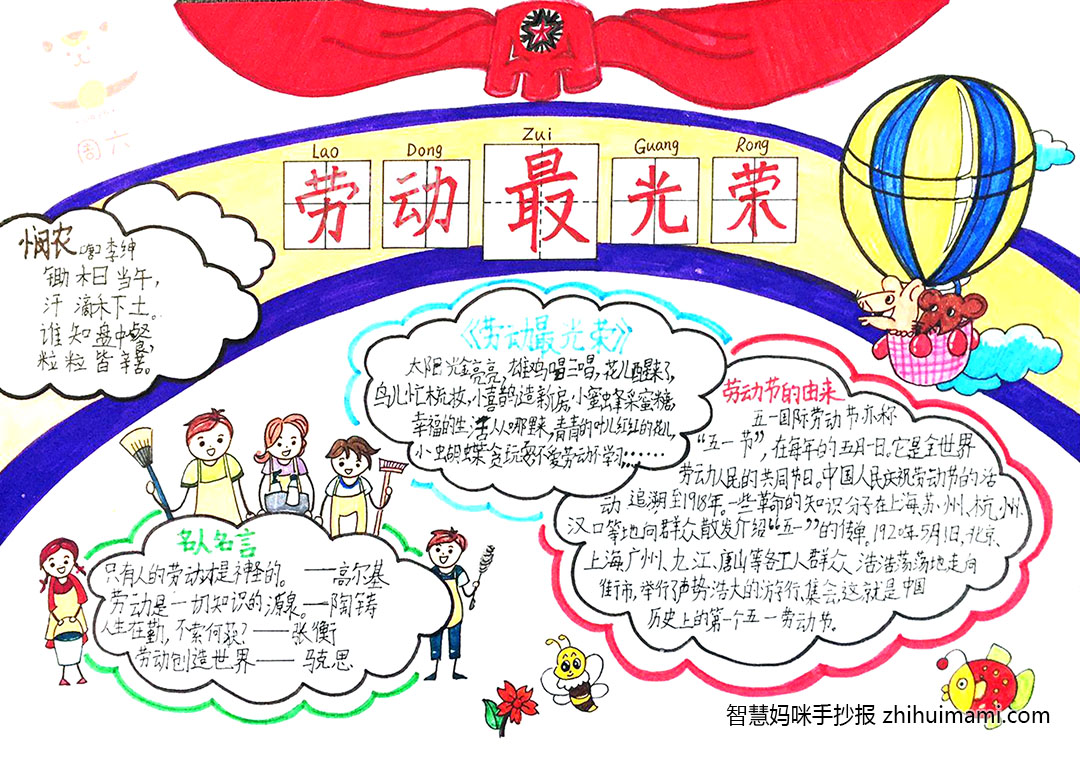 Lao Dong Zui Guang Rong
劳动最光荣
周六
悯农 唐 李绅
锄禾日当午,
汗滴禾下土。
谁知盘中餐,
粒粒皆辛苦。
《劳动最光荣》
太阳光金亮亮,雄鸡唱三唱,花儿醒来了,
鸟儿忙梳妆,小喜鹊造新房,小蜜蜂采蜜糖,
幸福的生活从哪里来,青青的叶儿红红的花儿,
小蝴蝶贪玩耍不爱劳动不学习......
劳动节的由来
五一国际劳动节亦称
“五一节”,在每年的五月一日。它是全世界
劳动人民的共同节日。中国人民庆祝劳动节的活
动追溯至1918年。一些革命的知识分子在上海、苏州、杭州、
汉口等地向群众散发介绍“五一”的传单,1920年5月1日,北京、
上海、广州、九江、唐山等各工人群众浩浩荡荡地走向
街市,举行了声势浩大的游行、集会,这就是中国
历史上的第一个五一劳动节。
名人名言
只有人的劳动才是神圣的。——高尔基
劳动是一切知识的源泉。—陶铸
人生在勤,不索何获?——张衡
劳动创造世界——马克思
智慧妈咪手抄报 zhihuimami.com